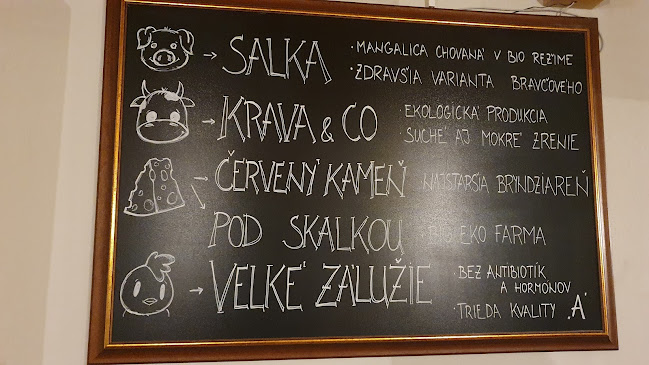 SALKA
· MANGALICA CHOVANÁ V BIO REŽIME
· ZDRAVŠIA VARIANTA BRAVČOVÉHO
KRAVA & CO
· EKOLOGICKÁ PRODUKCIA
· SUCHÉ AJ MOKRÉ ZRENIE
ČERVENÝ KAMEŇ
NAJSTARŠIA BRYNDZIAREŇ
POD SKALKOU
EKO FARMA
VEĽKÉ ZÁLUŽIE
· BEZ ANTIBIOTÍK
A HORMÓNOV
· TRIEDA KVALITY „A"